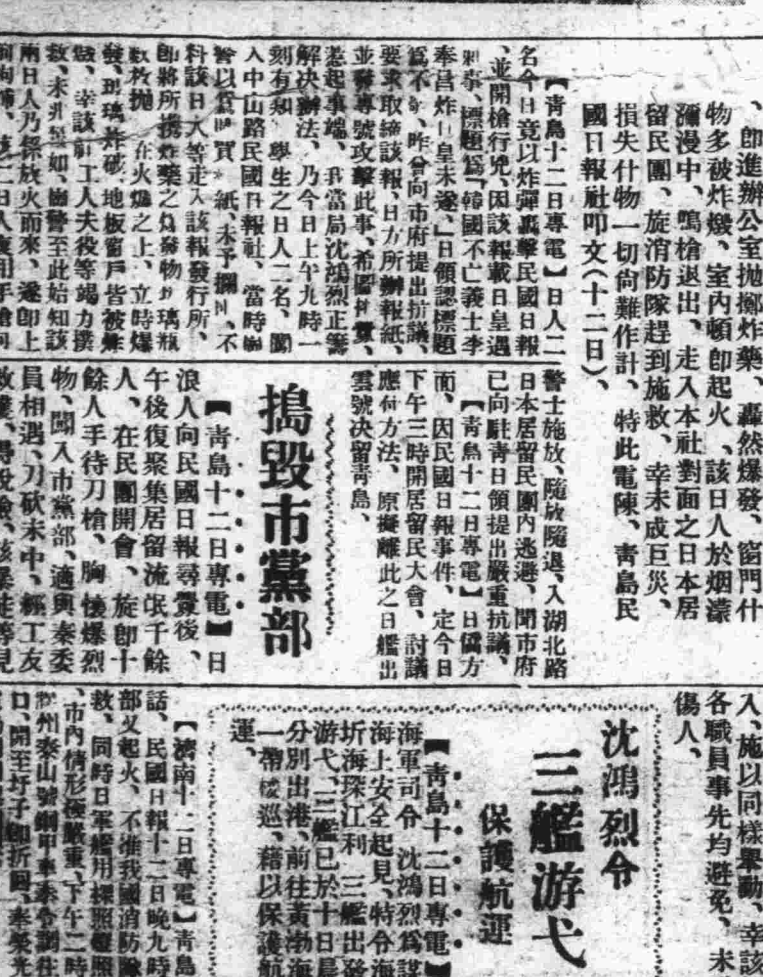 、卽進辦公室拋擲炸藥、轟然爆發、窗門什
物多被炸燬、室內頓卽起火、該日人於烟濛
瀰漫中、鳴槍退出、走入本社對面之日本居
留民團、旋消防隊趕到施救、幸未成巨災、
損失什物一切尙難作計、特此電陳、靑島民
國日報社叩文(十二日)、
【靑島十二日專電】日人二
名今日竟以炸彈轟擊民國日報
、並開槍行兇、因該報載日皇遇
刺事、標題爲「韓國不亡義士李
奉昌炸日皇未遂、」日領認標題
爲不敬、昨曾向市府提出抗議、
要求取締該報、日方所辦報紙、
並發專號攻擊此事、希圖
惹起事端、我當局沈鴻烈正籌
解决辦法、乃今日上午九時一
刻有類 學生之日人二名、闖
入中山路民國日報社、當時
警以爲購買 紙、未予攔 、不
料該日人等走入該報發行所、
卽將所攜炸藥之爆發物 玻璃瓶
數枚拋 在火爐之上、立時爆
發、玻璃炸破、地板窗戶皆被炸
燬、幸該社工人夫役等竭力撲
救、未兆 如、崗警至此始知該
兩日人乃係放火而來、遂卽上
前 捕、該二日人復用手槍向
警士施放、隨放隨退、入湖北路
日本居留民團內逃避、聞市府
已向駐靑日領提出嚴重抗議、
【靑島十二日專電】日僑方
面、因民國日報事件、定今日
下午三時開居留民大會、討議
應付方法、原擬離此之日艦出
雲號决留靑島、
搗毀市黨部
【靑島十二日專電】日
浪人向民國日報尋釁後、
午後復聚集居留流氓千餘
人、在民團開會、旋卽十
餘人手待刀槍、胸懷爆烈
物、闖入市黨部、適與秦委
員相遇、刀砍未中、經工友
救護、得脫險、該暴徒等見
入、施以同樣舉動、幸該
各職員事先均避免、未
傷人、
沈鴻烈令
三艦游弋
保護航運
【靑島十二日專電】
海軍司令沈鴻烈爲謀
海上安全起見、特令海
圻海琛江利三艦出發
游弋、三艦已於十日晨
分別出港、前往黃渤海
一帶梭巡、藉以保護航
運、
【濟南十二日專電】靑島
話、民國日報十二日晚九時
部又起火、不准我國消防隊
救、同時日軍艦用探照燈照
、市內情形極嚴重、下午二時
州泰山號鋼甲車奉令調往
口、開至圩子卽折回、秦榮光